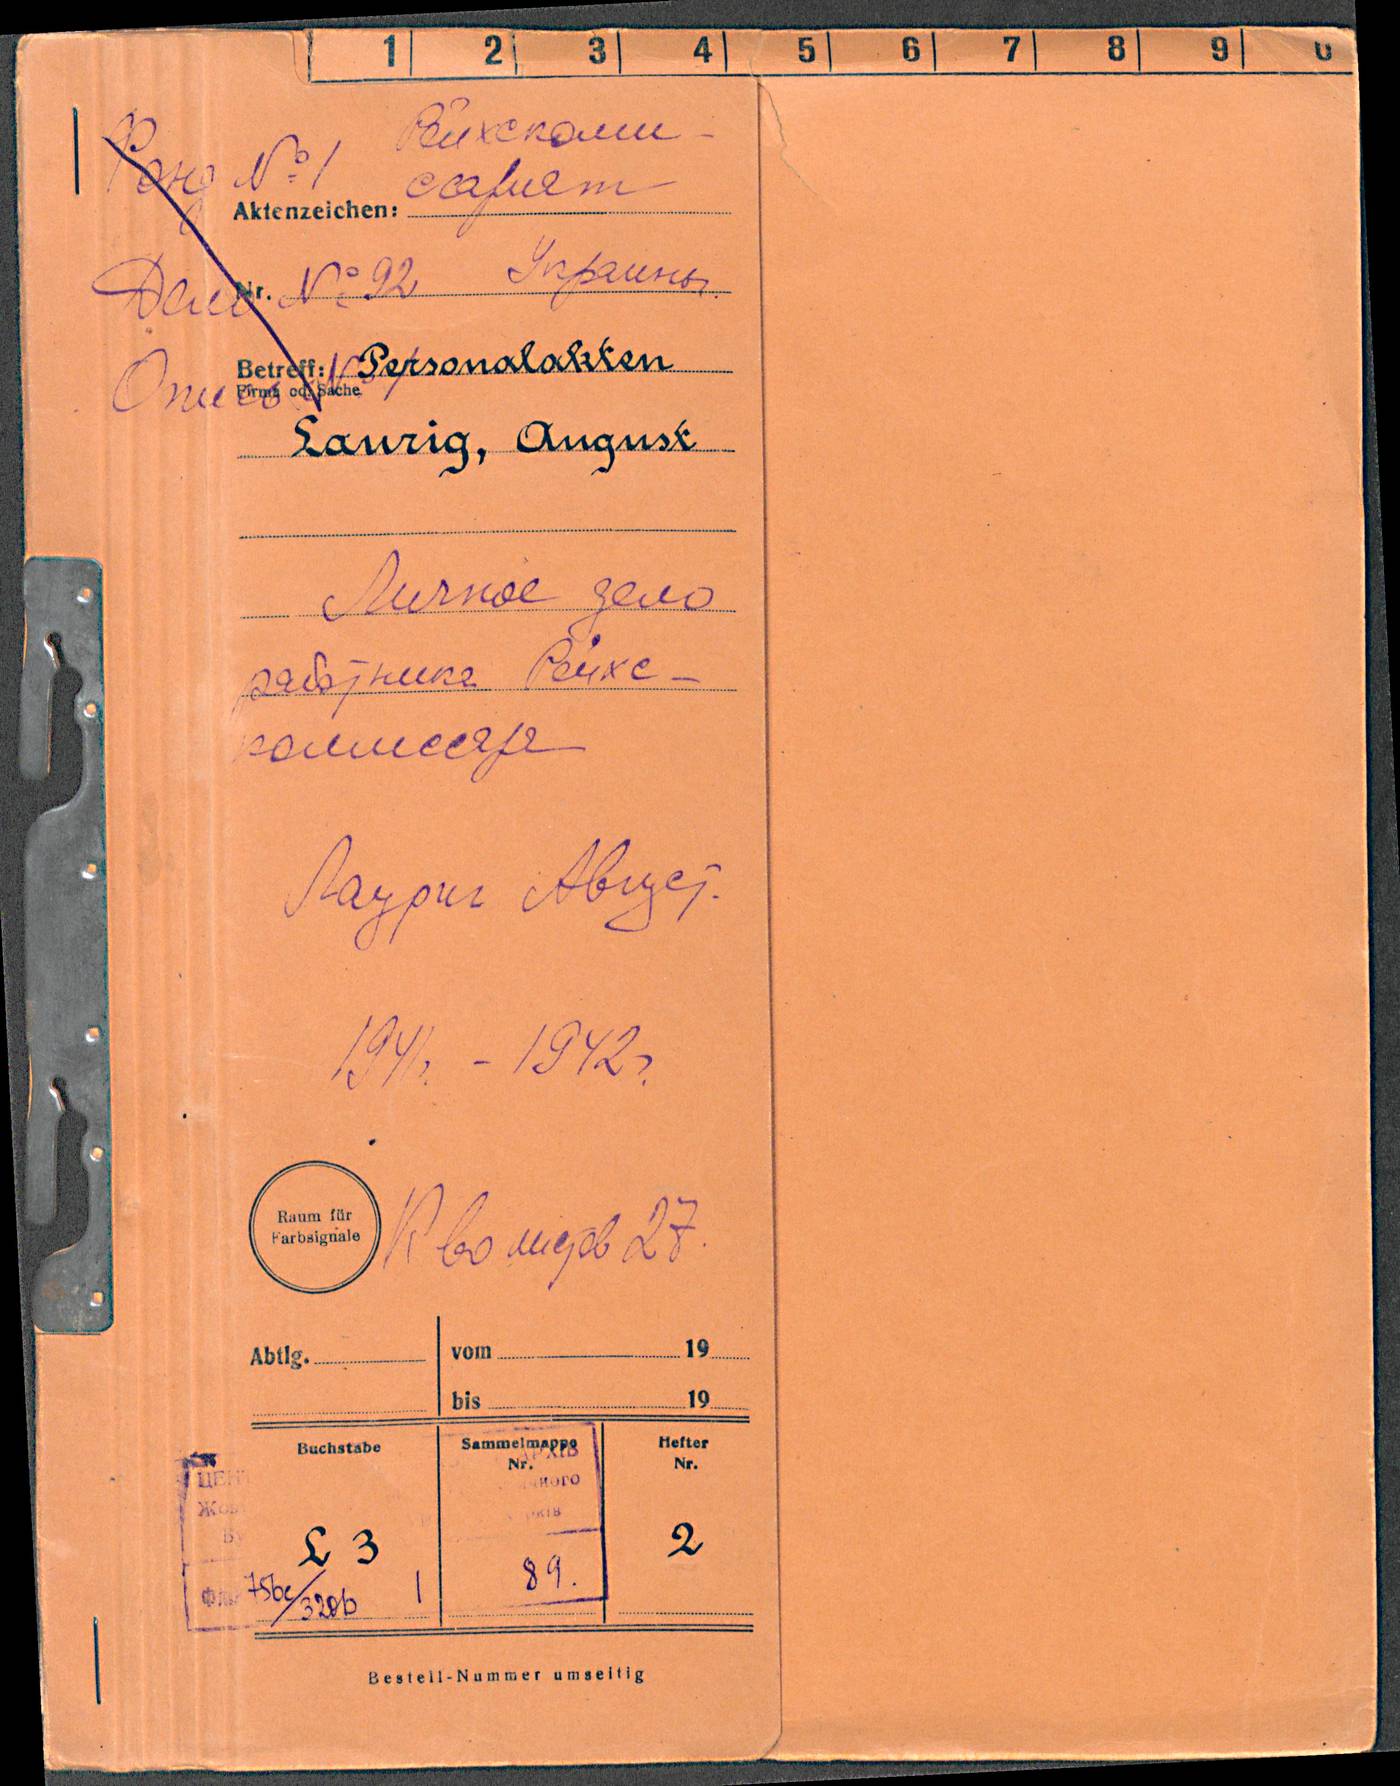 1 2 3 4 5 6 7 8 9 0
Фонд № 1 Рейхскоми-
ссариат
Aktenzeichen:
Дело № 92 Украины.
Nr.
Betreff: Personalakten
Firma od. Sache
Опись № 1
Laurig, August
Личное дело
работника Рейхс-
комиссара
Лауриг Август.
1941г. - 1942г.
Raum für
Farbsignale
К во листов 27.
Abtlg. vom 19
bis 19
Buchstabe Sammelmappe Nr. Hefter Nr.
L 3 2
89.
1
Bestell-Nummer umseitig